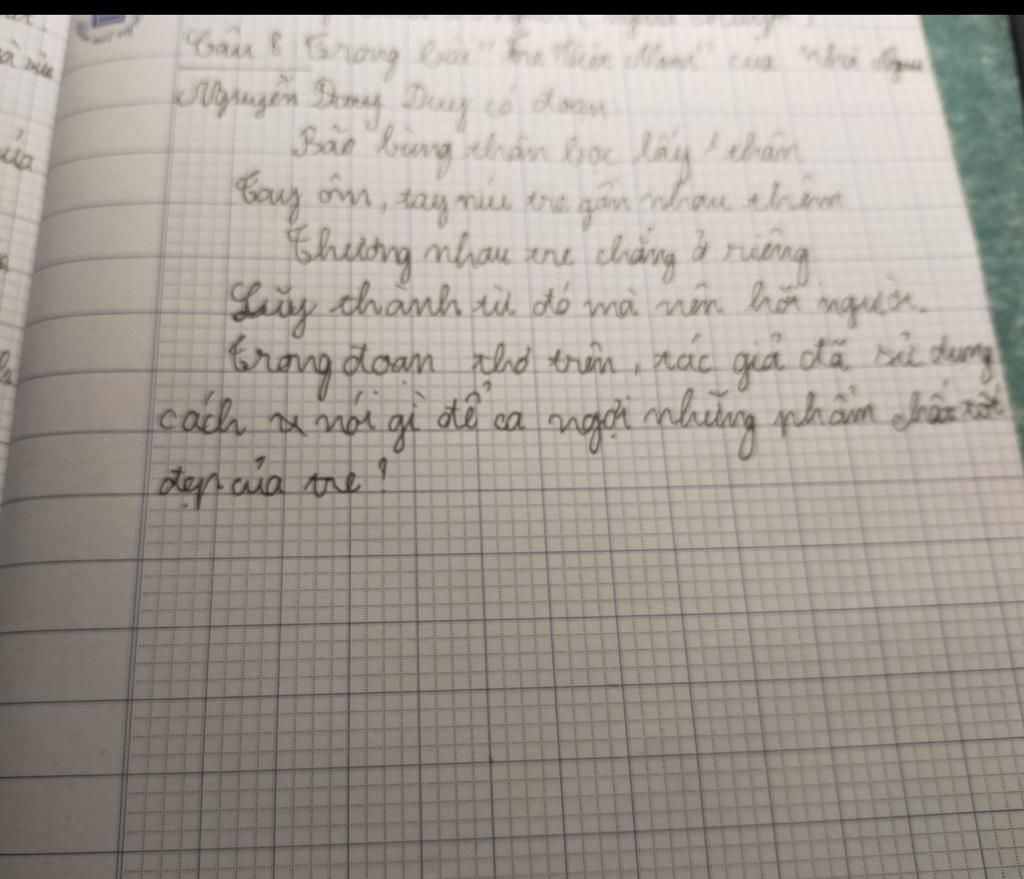 Câu 8 Trong bài "Tre Việt Nam" của nhà
Nguyễn Duy Duy có đoạn
Bão bùng thân bọc lấy thân
Tay ôm, tay níu tre gần nhau thêm
Thương nhau tre chẳng ở riêng
Lũy thành từ đó mà nên hỡi người.
Trong đoạn thơ trên, tác giả đã sử dụng
cách nói gì để ca ngợi những phẩm chất tốt
đẹp của tre?